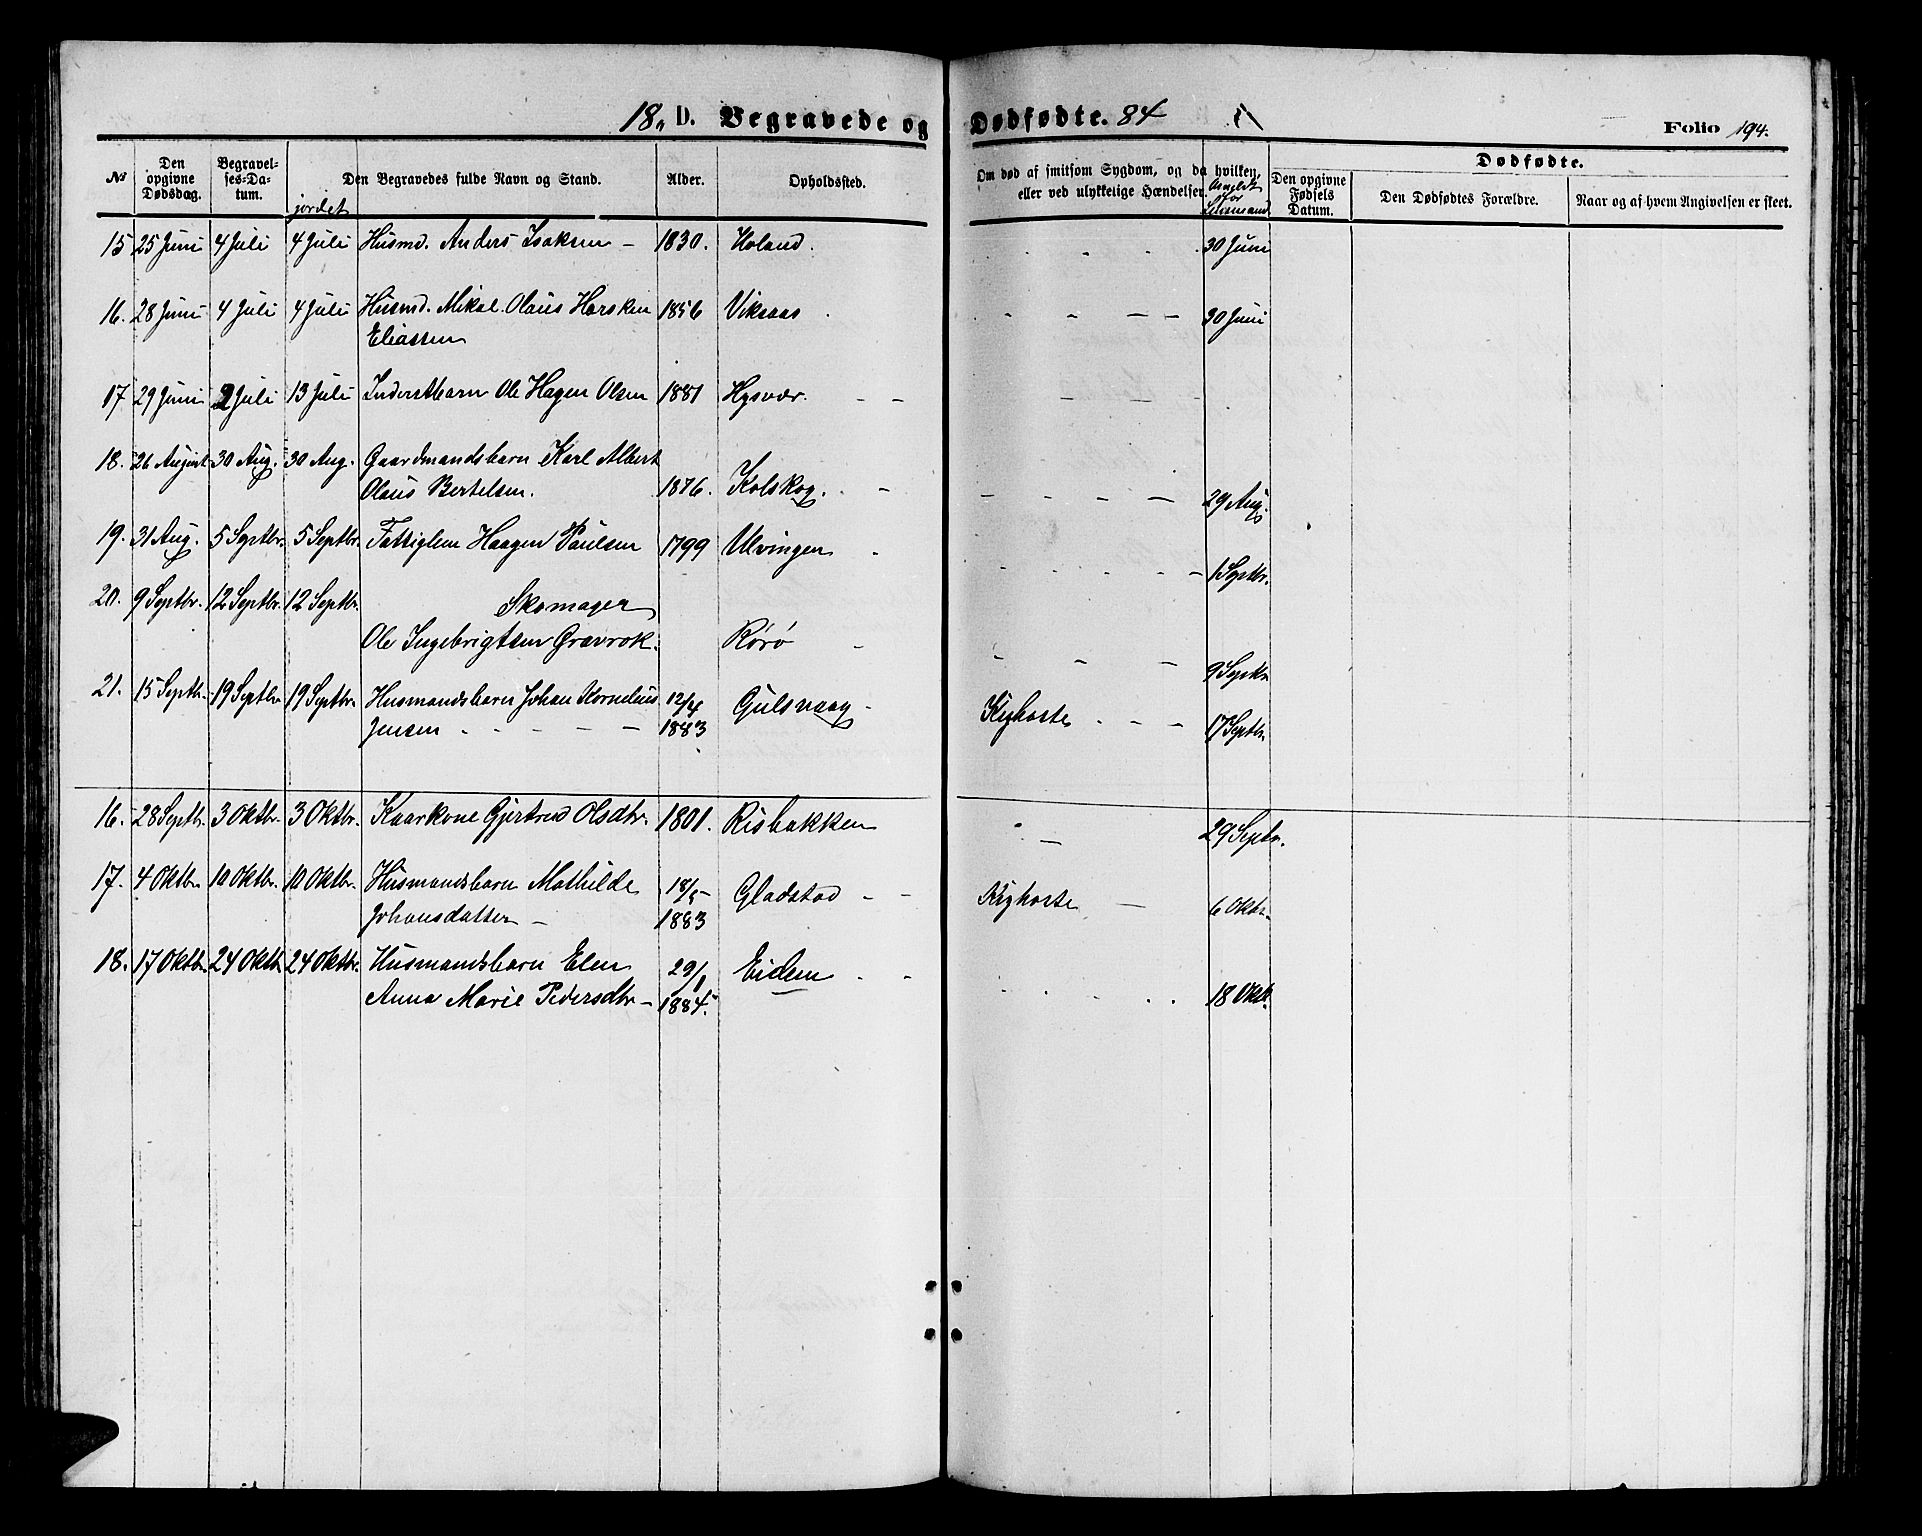 18. D. Begravede og Dødfødte. 84 Folio 194.
№ Den opgivne Dødsdag. Begravelses-Datum. jordet Den Begravedes fulde Navn og Stand. Alder. Opholdssted. Om død af smitsom Sygdom, og da hvilken, eller ved ulykkelige Hændelser. Anmeldt for Lensmand Dødfødte. Den opgivne Fødsels Datum. Den Dødfødtes Forældre. Naar og af hvem Angivelsen er skeet.
15 25 Juni 4 Juli 4 Juli Husmd. Anders Isaksen – 1830. Holand. 30 Juni
16. 28 Juni 4 Juli 4 Juli Husmd. Mikal Olaus Horsken 1856 Viksaas 30 Juni
Eliassen
17 29 Juni 2 Juli 13 Juli Inderstbarn Ole Hagen Olsen 1881 Hysvær. – –
18. 26 August 30 Aug. 30 Aug. Gaardmandsbarn Karl Albert
Olaus Bertelsen. 1876. Kolskog. – 29 Aug.
19. 31 Aug. 5 Septbr. 5 Septbr. Fattiglem Haagen Paulsen 1799 Ulvingen 1 Septbr.
20. 9 Septbr. 12 Septbr. 12 Septbr. Skomager
Ole Ingebrigtsen Gravrok. Rørø 9 Septbr
21. 15 Septbr. 19 Septbr 19 Septbr. Husmandsbarn Johan Kornelius 12/4 Gulsvaag – Kighoste
Jensen 1883 17 Septbr.
16. 28 Septbr. 3 Oktbr. 3 Oktbr. Kaarkone Gjertrud Olsdtr. 1801. Risbakken 29 Septbr.
17. 4 Oktbr 10 Oktbr. 10 Oktbr. Husmandsbarn Mathilde 18/5 Gladstad – – Kighoste – 6 Oktbr.
Johansdatter – 1883
18. 17 Oktbr. 24 Oktb 24 Oktbr. Husmandsbarn Elen 29/1 Eidem
Anna Marie Pedersdtr – 1884. 18 Oktb.